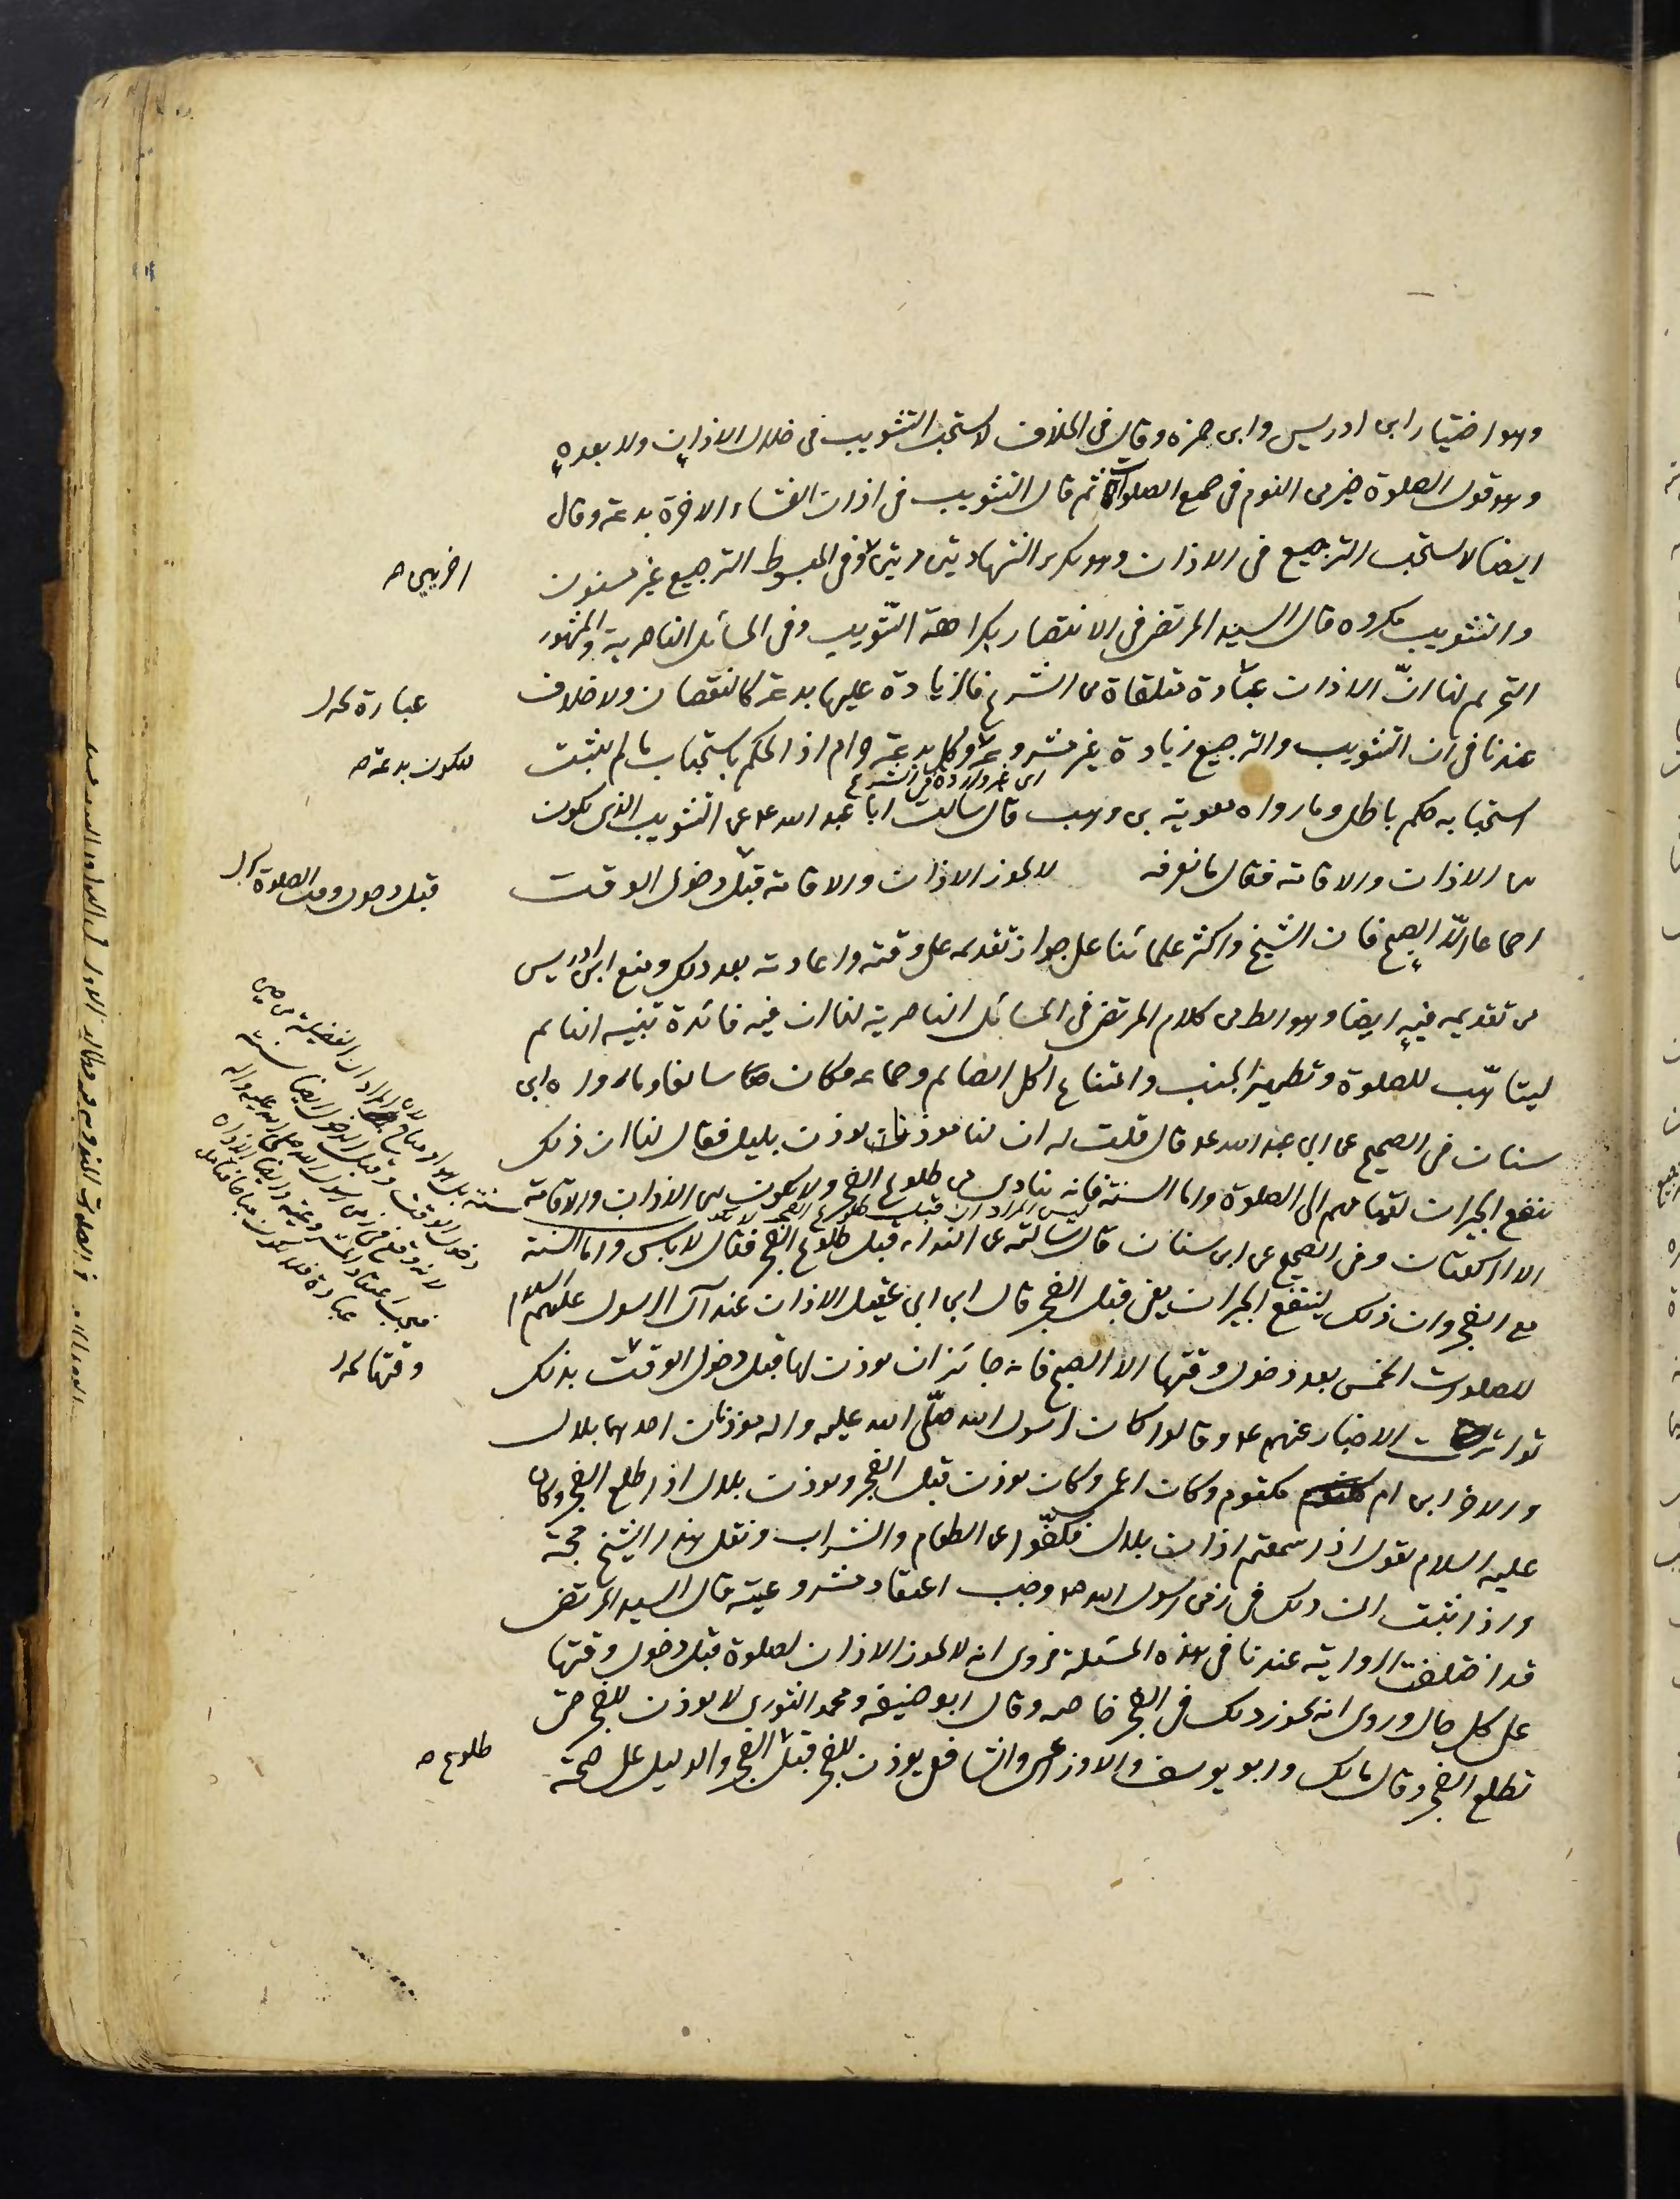 وهو اختيار ابن ادريس وابن حمزه وقال فى الخلاف لا يستحب التثويب فى خلال الاذان ولا بعده
وهو قول الصلوة خير من النوم فى جميع الصلوات ثم قال التثويب فى اذان العشاء الاخرة بدعة وقال
ايضا لا يستحب الترجيع فى الاذان وهو تكرير الشهادتين مرتين وفى المبسوط الترجيع غير مسنون
اخريين صح
والتثويب مكروه قال السيد المرتضى فى الانتصار بكراهة التثويب وفى المسائل الناصرية والمشهور
التحريم لنا انّ الاذان عبادة متلقاة من الشرع فالزيادة عليها بدعة كالنقصان ولا خلاف
عبارة
عندنا فى ان التثويب والترجيع زيادة غير مشروعة وكل بدعة حرام اذ الحكم باستحباب ما لم يثبت
فيكون بدعة صح
اى غير واردة من الشرع
استحبابه حكم باطل وما رواه معوية بن وهب قال سالت ابا عبد الله ع عن التثويب الذى يكون
بين الاذان والاقامة فقال ما نعرفه لا يجوز الاذان والاقامة قبل دخول الوقت
قبل دخول وقت الصلوة
اجماعا الّا الصبح فان الشيخ واكثر علمائنا على جواز تقديمه على وقته واعادته بعد ذلك ومنع ابن ادريس
من تقديمه فيه ايضا وهو الظ من كلام المرتضى فى المسائل الناصرية لنا ان فيه فائدة تنبيه النائم
ليتاهّب للصلوة وتطهير الجنب وامتناع اكل الصائم وجماعه فكان سائغا وما رواه ابن
سنان فى الصحيح عن ابى عبد الله ع قال قلت له ان لنا مؤذنا يوذن بليل فقال لنا ان ذلك
ينفع الجيران لقيامهم الى الصلوة واما السنة فانه ينادى من طلوع الفجر ولا يكون بين الاذان والاقامة
ليس المراد ان قبل طلوع الفجر
الا الركعتان وفى الصحيح عن ابن سنان قال سالته عن النداء قبل طلوع الفجر فقال لا باس واما السنة
مع الفجر وان ذلك لينتفع الجيران يعنى قبل الفجر قال ابن ابى عقيل الاذان عند آل الرسول عليهم السلام
للصلوات الخمس بعد دخول وقتها الا الصبح فانه جائز ان يوذن لها قبل دخول الوقت بذلك
وقتها
تواترت الاخبار عنهم ع وقالوا كان لرسول الله صلّى الله عليه واله مؤذنان احدهما بلال
والاخر ابن ام مكتوم وكان اعمى وكان يوذن قبل الفجر ويوذن بلال اذا طلع الفجر وكان
عليه السلام يقول اذا سمعتم اذان بلال فكفّوا عن الطعام والشراب ونقل هذا الشيخ حجة
واذا ثبت ان ذلك فى زمن رسول الله ص وجب اعتقاد مشروعيته قال السيد المرتضى
قد اختلفت الرواية عندنا فى هذه المسئلة فروى انه لا يجوز الاذان لصلوة قبل دخول وقتها
على كل حال وروى انه يجوز ذلك فى الفجر خاصه وقال ابو حنيفه ومحمد والثورى لا يوذن للفجر حتى
تطلع الفجر وقال مالك وابو يوسف والاوزاعى والشافعى يوذن للفجر قبل الفجر والدليل على صحة
طلوع صح